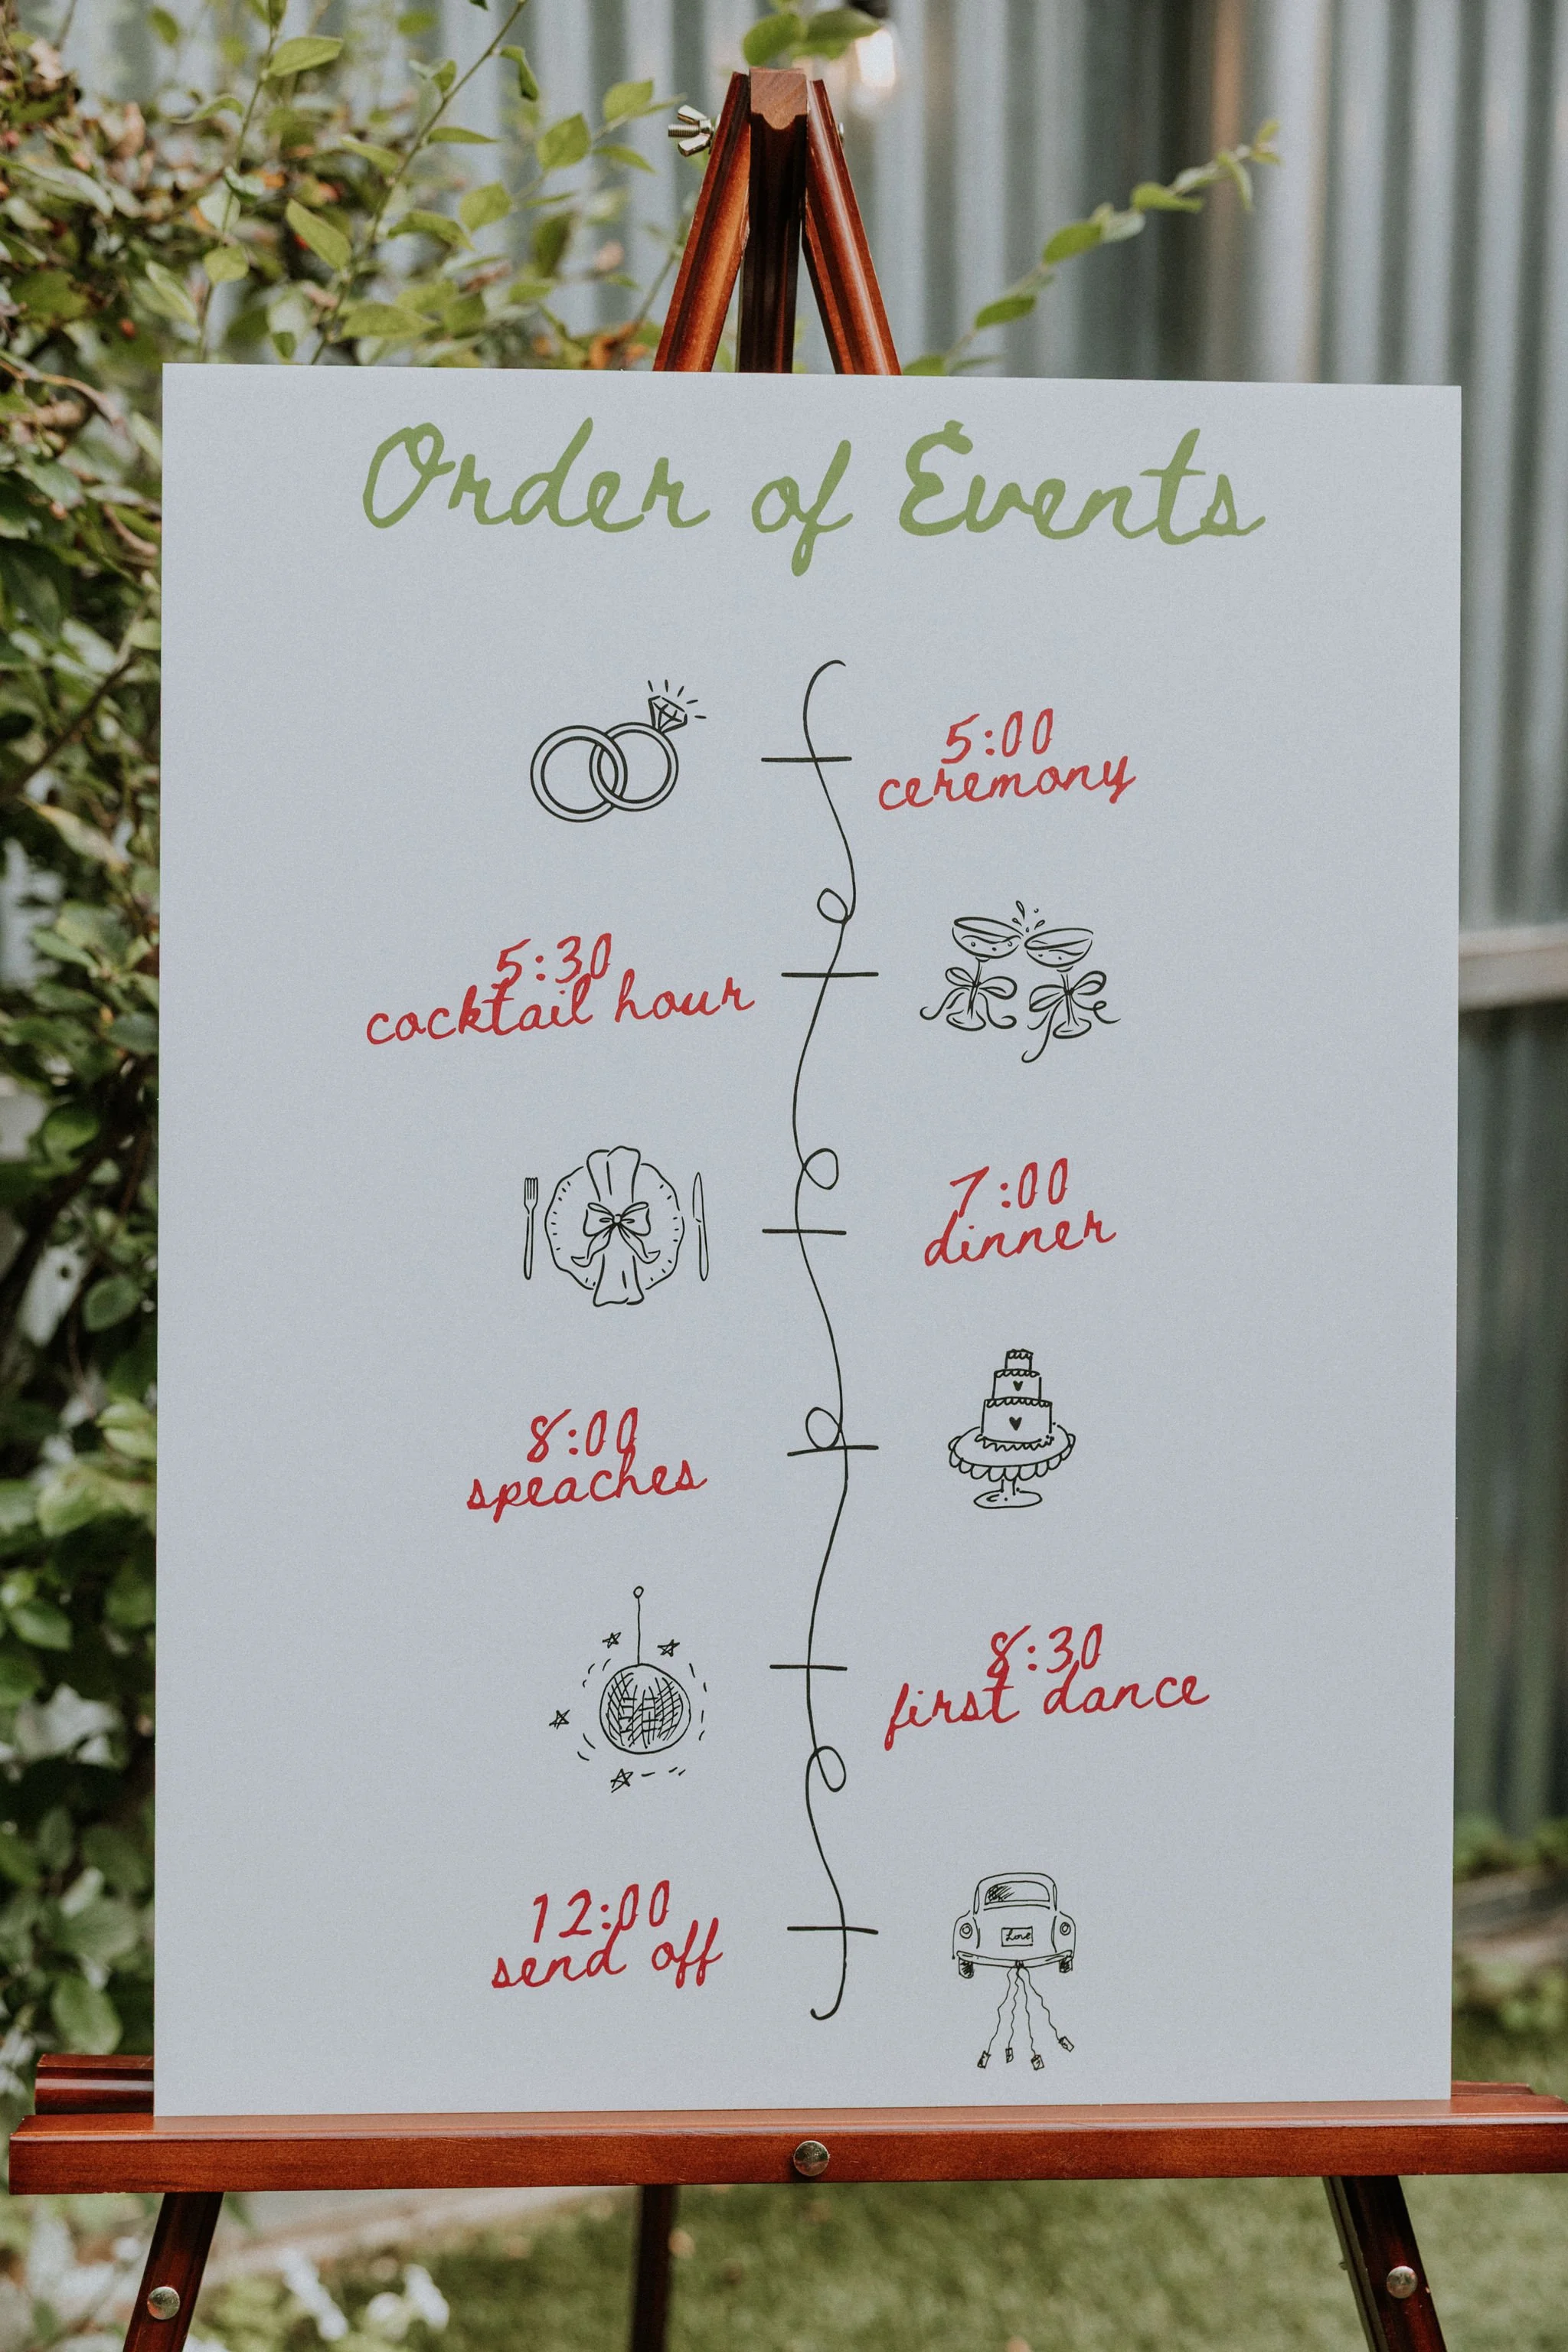 Order of Events
5:00
ceremony
5:30
cocktail hour
7:00
dinner
8:00
speaches
8:30
first dance
12:00
send off
Love